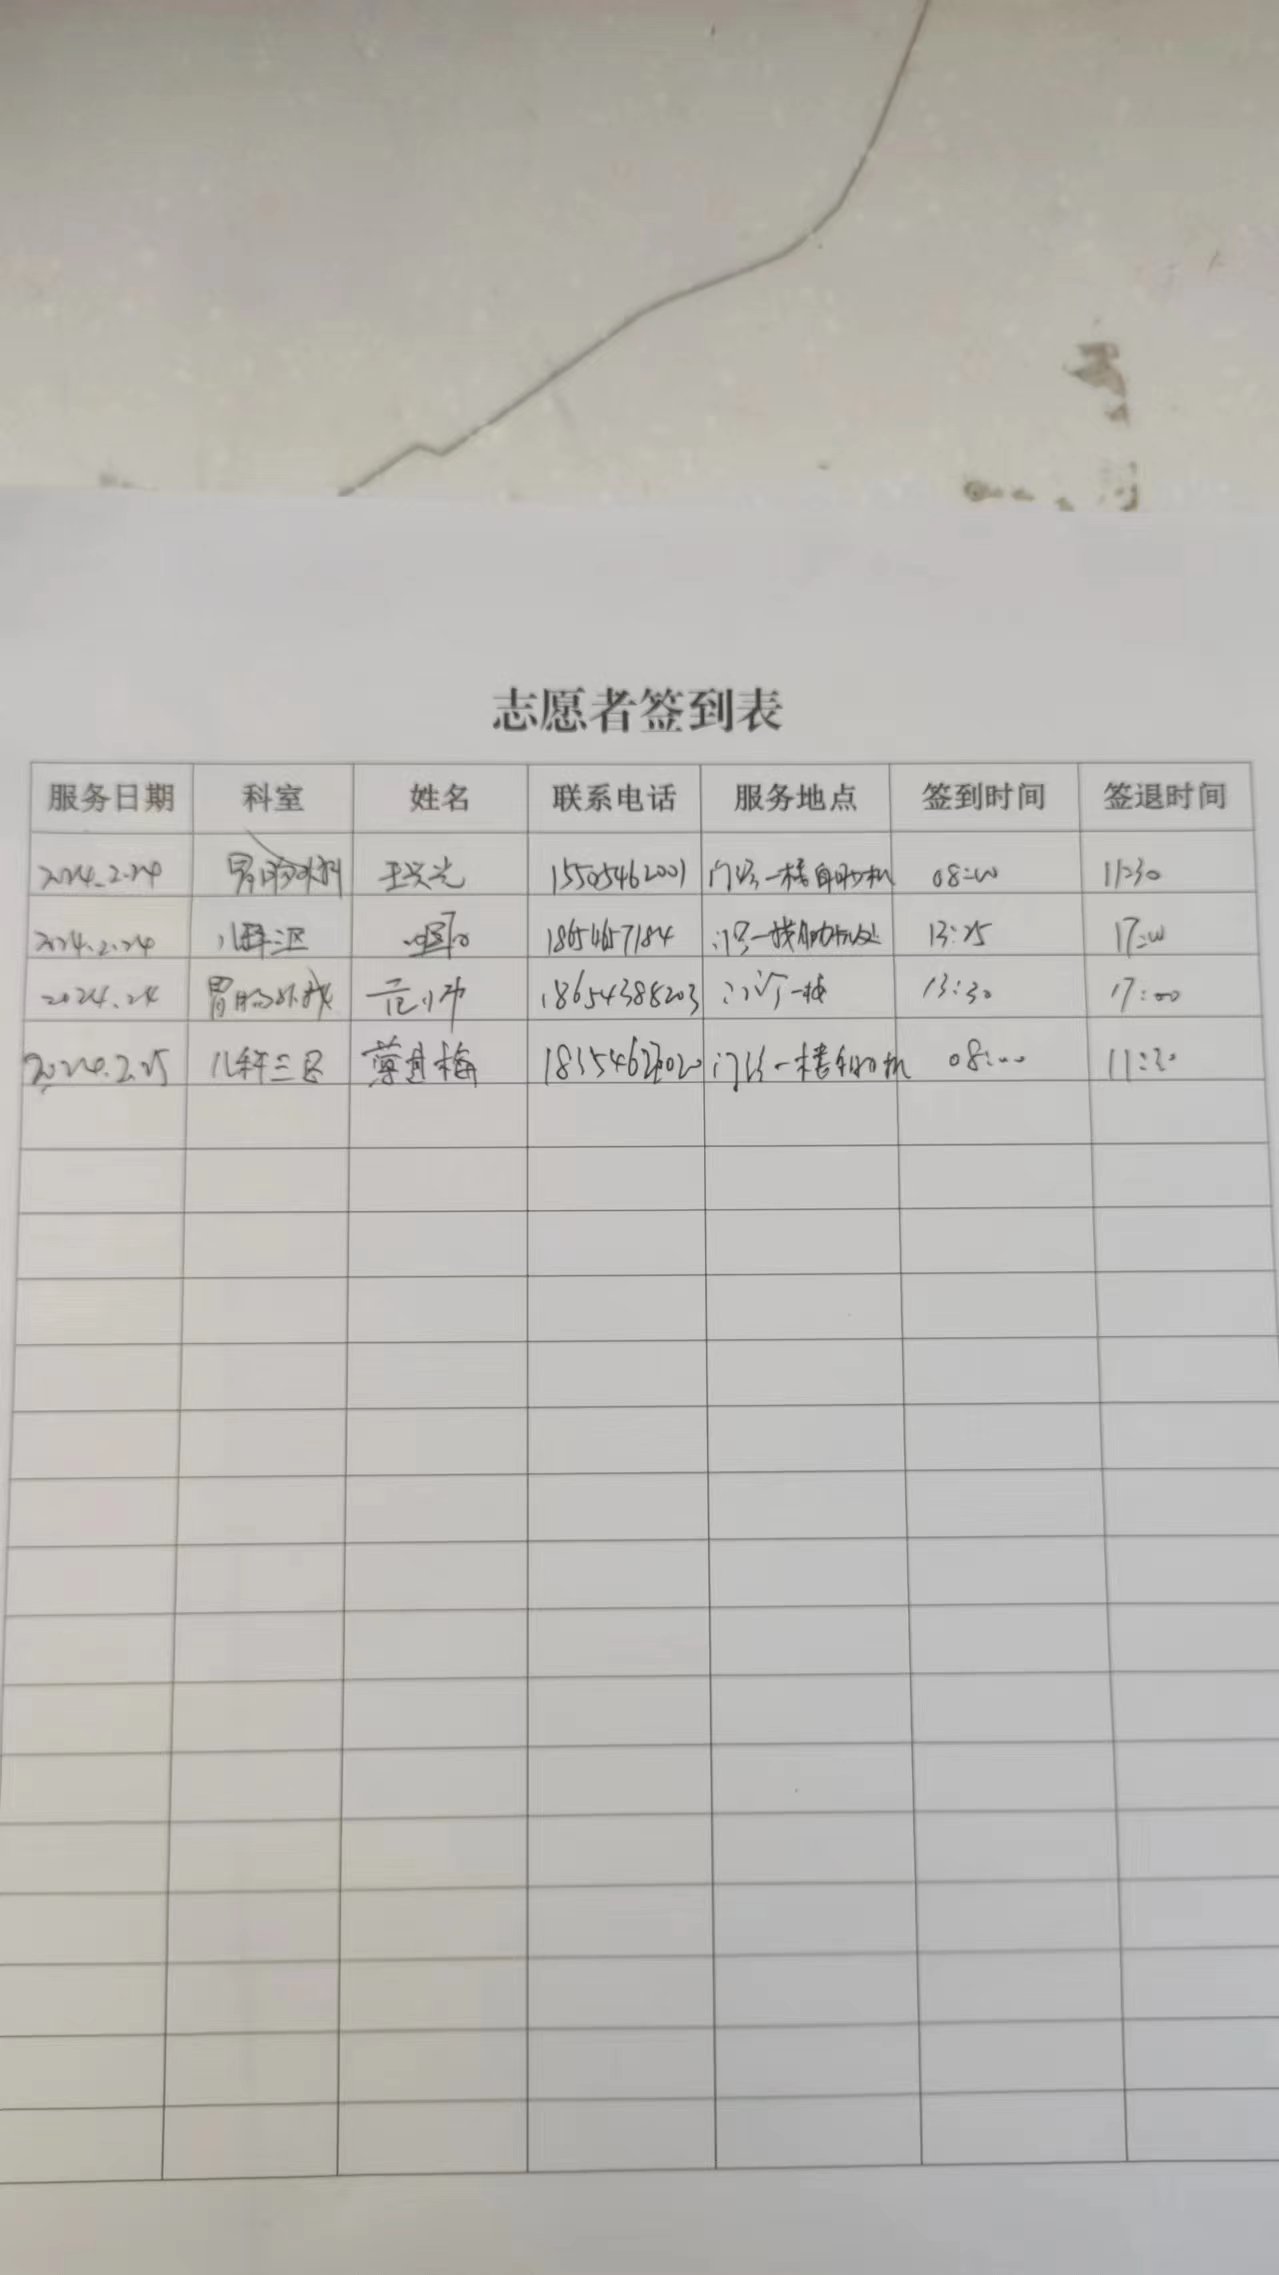 志愿者签到表
服务日期 科室 姓名 联系电话 服务地点 签到时间 签退时间
2024.2.24 胃肠外科 王兴光 15505462001 门诊一楼自助机 08:00 11:30
2024.2.24 儿科三区 18654657184 门诊一楼 13:25 17:00
2024.24 胃肠外科 范小冲 18654388203 门诊一楼 13:30 17:00
2024.2.25 儿科三区 薄其梅 门诊一楼自助机 08:00 11:30